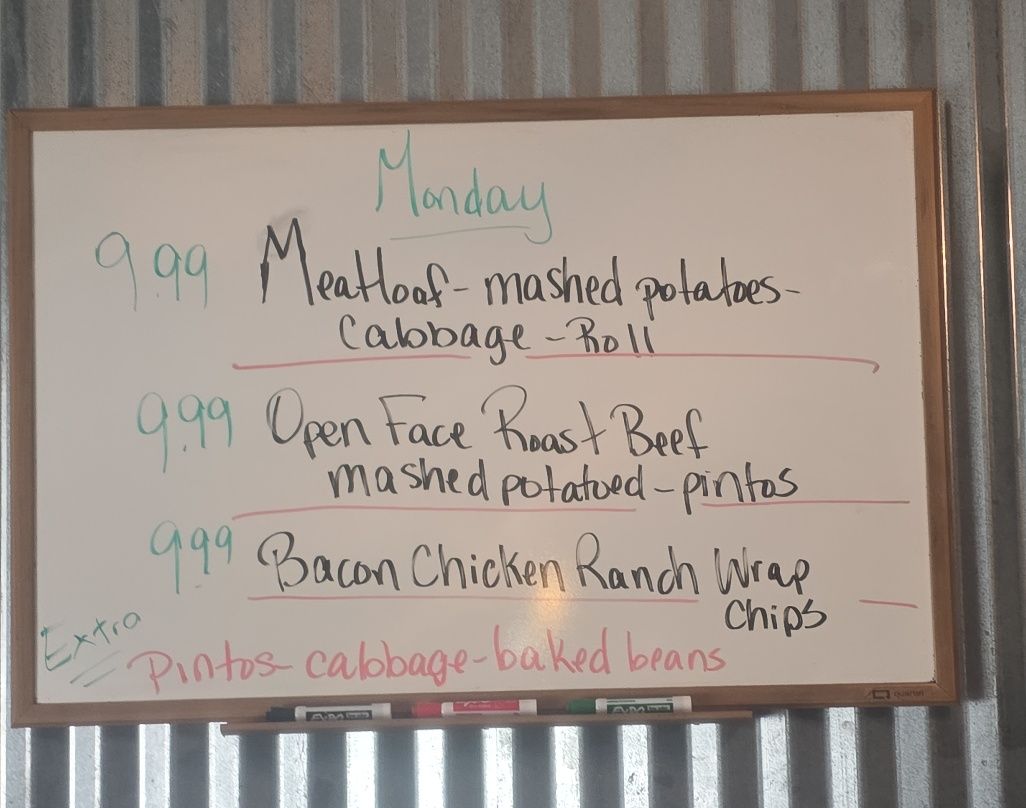 Monday
9.99 Meatloaf - mashed potatoes -
Cabbage - Roll
9.99 Open Face Roast Beef
mashed potatoed - pintos
9.99 Bacon Chicken Ranch Wrap
Chips
Extra
Pintos - cabbage - baked beans
quartet
EXPO